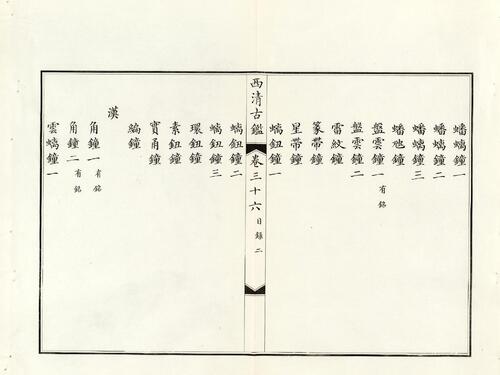 蟠螭鐘一
蟠螭鐘二
蟠螭鐘三
蟠虺鐘
盤雲鐘一 有銘
盤雲鐘二
雷紋鐘
篆帶鐘
星帶鐘
螭鈕鐘一
西清古鑑 卷三十六 目錄 二
螭鈕鐘二
螭鈕鐘三
環鈕鐘
素鈕鐘
實甬鐘
編鐘
漢
角鐘一 有銘
角鐘二 有銘
雲螭鐘一